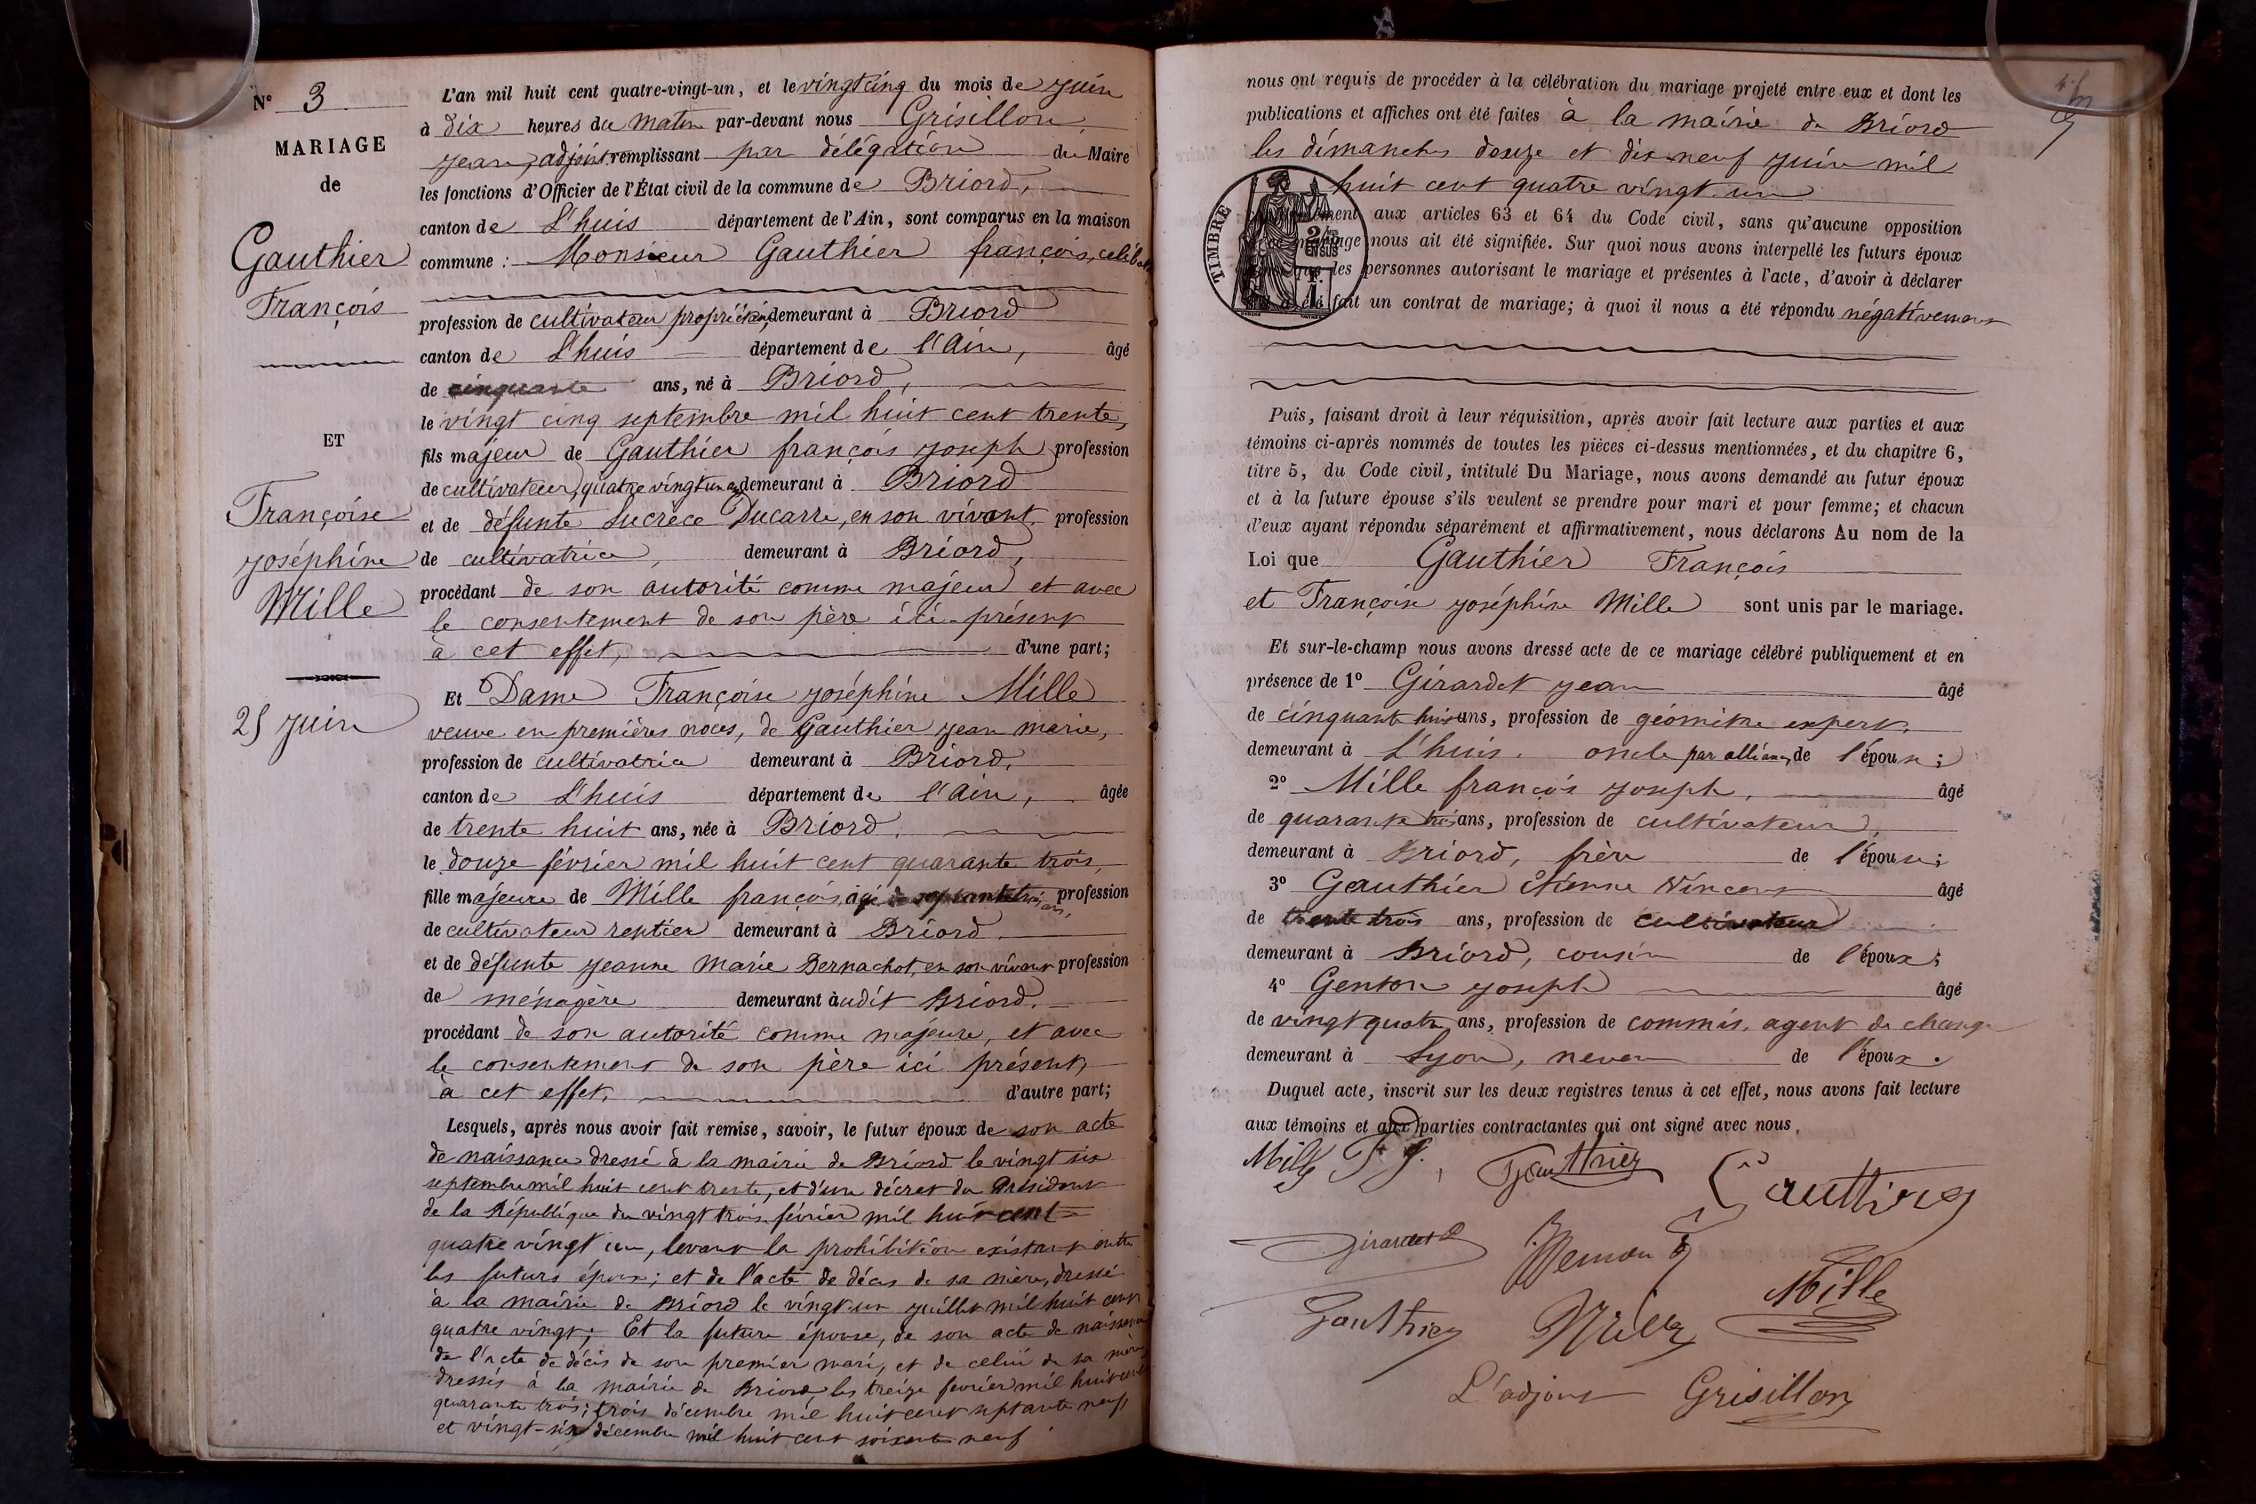 N° 3
MARIAGE
de
Gauthier
François
ET
Françoise
Joséphine
Mille
25 Juin
L'an mil huit cent quatre-vingt-un, et le vingt cinq du mois de Juin
à dix heures du matin par-devant nous Grisillon
Jean, adjoint remplissant par délégation du Maire
les fonctions d'Officier de l'État civil de la commune de Briord,
canton de L'huis département de l'Ain, sont comparus en la maison
commune : Monsieur Gauthier françois,
profession de cultivateur propriétaire, demeurant à Briord
canton de L'huis département de l'Ain, âgé
de cinquante ans, né à Briord,
le vingt cinq septembre mil huit cent trente,
fils majeur de Gauthier françois Joseph profession
de cultivateur, quatre vingt un ans demeurant à Briord
et de défunte Lucrèce Ducarre, en son vivant profession
de cultivatrice, demeurant à Briord,
procédant de son autorité comme majeur et avec
le consentement de son père ici présent
à cet effet, d'une part;
Et Dame Françoise Joséphine Mille
veuve en premières noces, de Gauthier Jean marie,
profession de cultivatrice demeurant à Briord,
canton de L'huis département de l'Ain, âgée
de trente huit ans, née à Briord,
le douze février mil huit cent quarante trois,
fille majeure de Mille françois, âgé de septante trois ans, profession
de cultivateur rentier demeurant à Briord
et de défunte Jeanne Marie Bernachot, en son vivant profession
de ménagère demeurant audit Briord.
procédant de son autorité comme majeure, et avec
le consentement de son père ici présent,
à cet effet, d'autre part;
Lesquels, après nous avoir fait remise, savoir, le futur époux de son acte
de naissance dressé à la mairie de Briord le vingt six
septembre mil huit cent trente, et d'un décret du Président
de la République du vingt trois février mil huit cent
quatre vingt un, levant la prohibition existant entre
les futurs époux; et de l'acte de décès de sa mère, dressé
à la mairie de Briord le vingt un juillet mil huit cent
quatre vingt; Et la future épouse, de son acte de naissance
de l'acte de décès de son premier mari, et de celui de sa mère
dressés à la mairie de Briord les treize février mil huit cent
quarante trois; trois décembre mil huit cent septante neuf
et vingt-six décembre mil huit cent soixante neuf
nous ont requis de procéder à la célébration du mariage projeté entre eux et dont les
publications et affiches ont été faites à la mairie de Briord
les dimanches douze et dix neuf Juin mil
huit cent quatre vingt un
aux articles 63 et 64 du Code civil, sans qu'aucune opposition
nous ait été signifiée. Sur quoi nous avons interpellé les futurs époux
les personnes autorisant le mariage et présentes à l'acte, d'avoir à déclarer
fait un contrat de mariage; à quoi il nous a été répondu négativement
TIMBRE
Puis, faisant droit à leur réquisition, après avoir fait lecture aux parties et aux
témoins ci-après nommés de toutes les pièces ci-dessus mentionnées, et du chapitre 6,
titre 5, du Code civil, intitulé Du Mariage, nous avons demandé au futur époux
et à la future épouse s'ils veulent se prendre pour mari et pour femme; et chacun
d'eux ayant répondu séparément et affirmativement, nous déclarons Au nom de la
Loi que Gauthier François
et Françoise Joséphine Mille sont unis par le mariage.
Et sur-le-champ nous avons dressé acte de ce mariage célébré publiquement et en
présence de 1° Girardet Jean âgé
de cinquante huit ans, profession de géomètre expert,
demeurant à L'huis. oncle par alliance de l'épouse;
2° Mille françois Joseph, âgé
de quarante trois ans, profession de cultivateur,
demeurant à Briord, frère de l'épouse;
3° Gauthier Etienne Vincent âgé
de trente trois ans, profession de cultivateur
demeurant à Briord, cousin de l'époux;
4° Genton Joseph âgé
de vingt quatre ans, profession de commis, agent de change
demeurant à Lyon, neveu de l'époux.
Duquel acte, inscrit sur les deux registres tenus à cet effet, nous avons fait lecture
aux témoins et aux parties contractantes qui ont signé avec nous.
Mille F. J. Gauthier Gauthier
Girardet
Gauthier Mille Mille
L'adjoint Grisillon